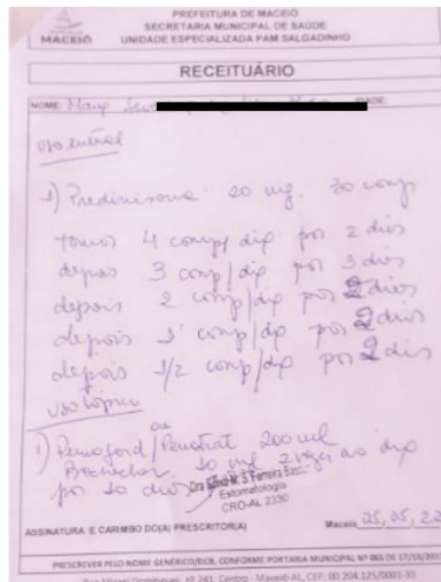 PREFEITURA DE MACEIÓ
SECRETARIA MUNICIPAL DE SAÚDE
UNIDADE ESPECIALIZADA PAM SALGADINHO
MACEIÓ
RECEITUÁRIO
NOME: IDADE:
uso enteral
1) Predinisona 20 mg. 30 comp
tomar 4 comp/dia por 2 dias
depois 3 comp/dia por 3 dias
depois 2 comp/dia por 2 dias
depois 1 comp/dia por 2 dias
depois 1/2 comp/dia por 2 dias
uso tópico
ou
1) 200 ml
Bochechar 10 ml 2 vezes ao dia
por 10 dias
Estomatologia
CRO-AL 2330
ASSINATURA E CARIMBO DO(A) PRESCRITOR(A) Maceió 05, 05, 22
PRESCREVER PELO NOME GENÉRICO/DCB, CONFORME PORTARIA MUNICIPAL Nº 066 DE 17/10/
241, Centro - Maceió-AL, CEP: 00.204.125/0001-33